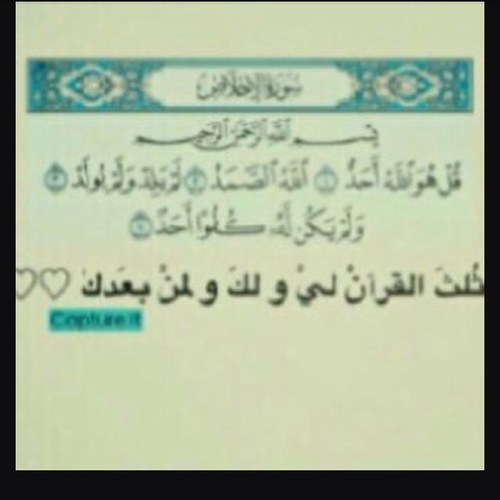 سُورَةُ الإِخْلَاصِ
بِسْمِ اللَّهِ الرَّحْمَٰنِ الرَّحِيمِ
قُلْ هُوَ اللَّهُ أَحَدٌ ١ اللَّهُ الصَّمَدُ ٢ لَمْ يَلِدْ وَلَمْ يُولَدْ ٣
وَلَمْ يَكُن لَّهُ كُفُوًا أَحَدٌ ٤
ثُلثَ القرآنْ ليْ و لكَ و لمنْ بعَدكَ ♡♡
Capture it